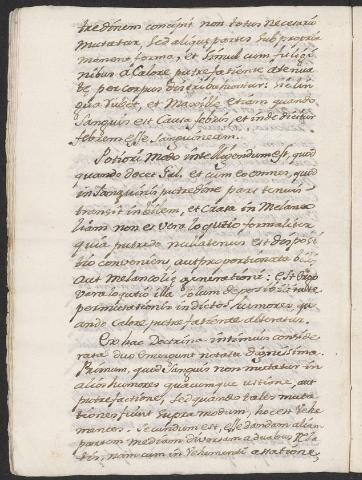 tredinem concipit non totus necesario
mutatur, sed aliquæ partes sub propria
manent forma, et simul cum fuligi
nibus à Calore putrefaciente
per corpus distribuuntur:
qua subest, et Maxille etiam quando
Sanguis est Causa febris, et inde dicitur
febrem esse sanguineam.
Potiori Modo intelligendum est, quod
quando docet Gal. et cum eo omnes, quod
in sanguinis putredine pars tenuis
transit in bilem, et Crassa in Melanco
liam non est vera loqutio formaliter
quia putredo nullatenus est disposi
tio conveniens, aut proportionata bilis
aut Melancolie generationi: est ergo
vera loqutio illa solum de possibilitate
permutationis in dictos humores, qu
ando Calore putrefaciente alteratur.
Ex hac Doctrina intimius conside
rata duo emergunt notatu dignissima.
Primum, quod sanguis non mutatur in
alios humores quacumque ustione, aut
putrefactione, sed quando tales muta
tiones fiunt supra modum, hoc est Vehe
mentes. Secundum est, esse dandam aliam
partem mediam diversam a duabus
tis, nam cum in Vehementi assatione,